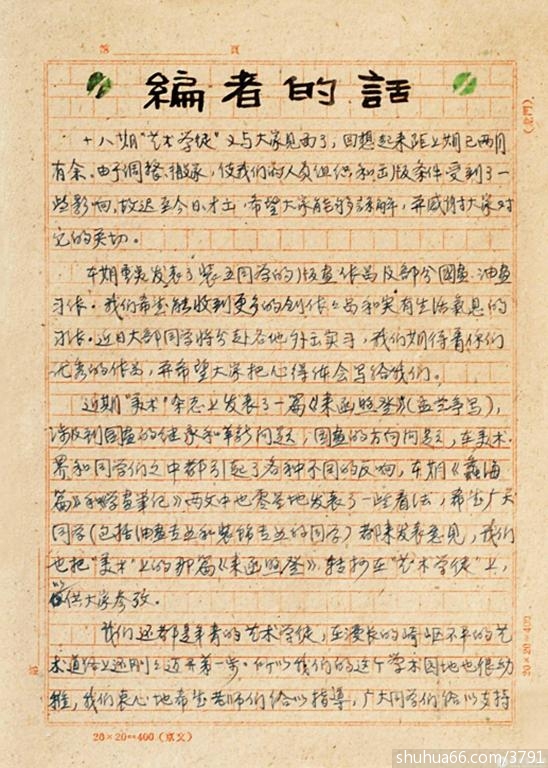 第 頁
編者的話
十八期“艺术学徒”又与大家见面了，回想起来距上期已两月
有余。由于调整、搬家，使我们的人员组织和出版条件受到了一
些影响，故迟至今日才出，希望大家能够谅解，并感谢大家对
它的关切。
本期重点发表了装五同学的版画作品及部分國画、油画
习作。我们希望能收到更多的创作作品和实有生活氣息的
习作。近日大部同学将分赴各地外出实习，我们期待着你们
优秀的作品，并希望大家把心得体会写给我们。
近期“美术”杂志上发表了一篇《来函照登》（孟兰亭写），
涉及到国画的继承和革新问题，国画的方向问题，在美术
界和同学们之中都引起了各种不同的反响，本期《蠡海
篇》和《学画筆记》两文中也零星地发表了一些看法，希望广大
同学（包括油画专业和装饰专业的同学）都来发表意见，我们
也把“美术”上的那篇《来函照登》，转抄在“艺术学徒”上，
以供大家参考。
我们还都是年青的艺术学徒，在漫长的崎岖不平的艺
术道路上还刚刚迈开第一步。所以我们的这个学术园地也很幼
稚，我们衷心地希望老师们给以指导，广大同学们给以支持
20×20=400（京文）
20×20=400
shuhua66.com/3791